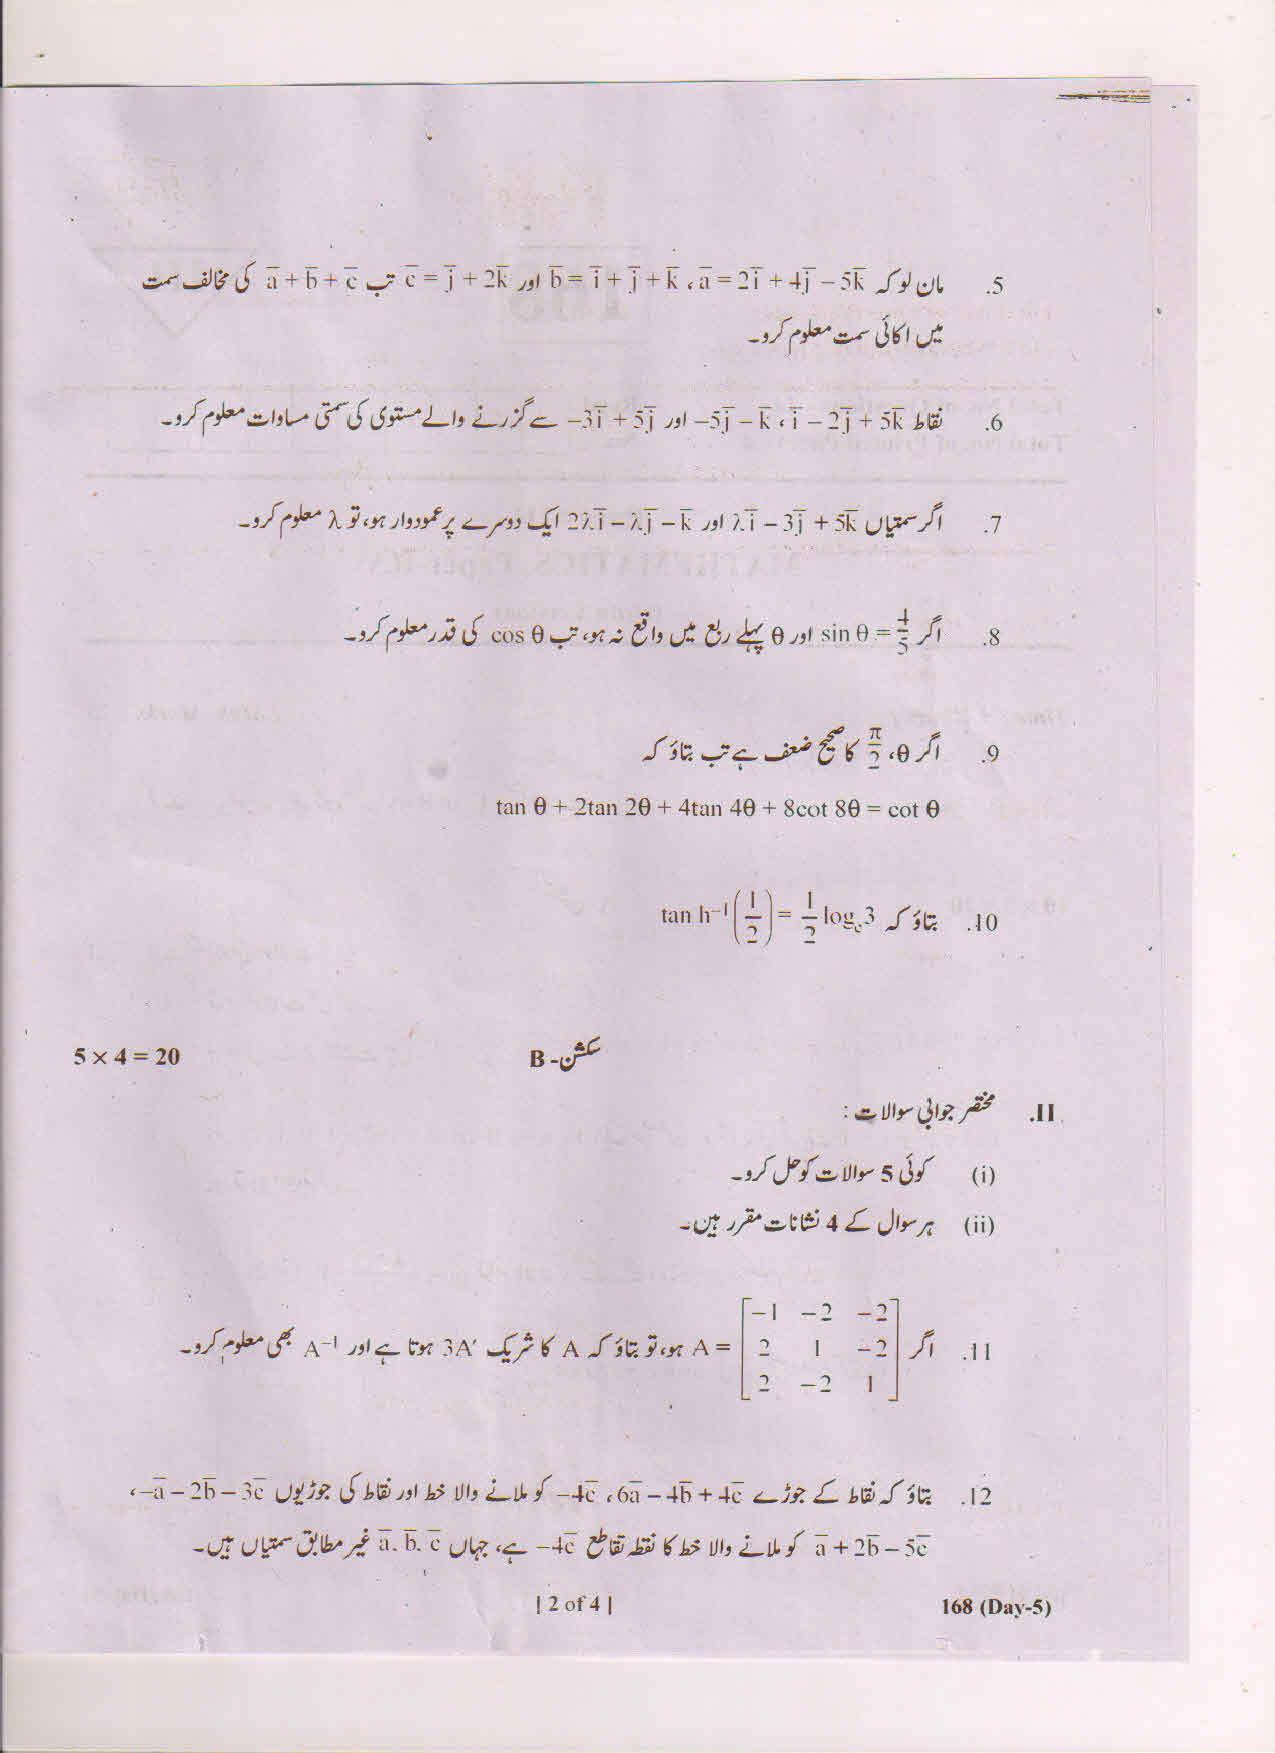 5. مان لو کہ a̅ = 2i̅ + 4j̅ − 5k̅ ، b̅ = i̅ + j̅ + k̅ اور c̅ = j̅ + 2k̅ تب a̅ + b̅ + c̅ کی مخالف سمت
میں اکائی سمت معلوم کرو۔
6. نقاط i̅ − 2j̅ + 5k̅ ، −5j̅ − k̅ اور −3i̅ + 5j̅ سے گزرنے والے مستوی کی سمتی مساوات معلوم کرو۔
7. اگر سمتیاں λi̅ − 3j̅ + 5k̅ اور 2λi̅ − λj̅ − k̅ ایک دوسرے پر عموددار ہو، تو λ معلوم کرو۔
8. اگر sin θ = 4/5 اور θ پہلے ربع میں واقع نہ ہو، تب cos θ کی قدر معلوم کرو۔
9. اگر θ، π/2 کا صحیح ضعف ہے تب بتاؤ کہ
tan θ + 2tan 2θ + 4tan 4θ + 8cot 8θ = cot θ
10. بتاؤ کہ tan h⁻¹(1/2) = 1/2 logₑ3
سکشن - B 5 × 4 = 20
II. مختصر جوابی سوالات :
(i) کوئی 5 سوالات کو حل کرو۔
(ii) ہر سوال کے 4 نشانات مقرر ہیں۔
11. اگر A = [−1 −2 −2; 2 1 −2; 2 −2 1] ہو، تو بتاؤ کہ A کا شریک 3A′ ہوتا ہے اور A⁻¹ بھی معلوم کرو۔
12. بتاؤ کہ نقاط کے جوڑے 6a̅ − 4b̅ + 4c̅ ، −4c̅ کو ملانے والا خط اور نقاط کی جوڑیوں −a̅ − 2b̅ − 3c̅ ،
a̅ + 2b̅ − 5c̅ کو ملانے والا خط کا نقطہ تقاطع −4c̅ ہے، جہاں a̅. b̅. c̅ غیر مطابق سمتیاں ہیں۔
168 (Day-5) | 2 of 4 |